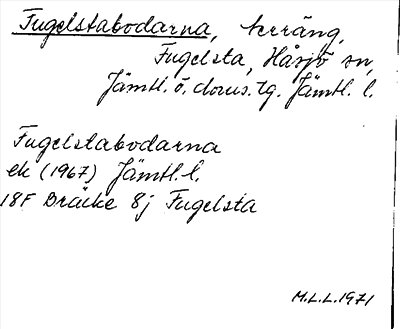 Fugelstabodarna, terräng,
Fugelsta, Håsjö sn,
Jämtl. ö. doms. tg. Jämtl. l.
Fugelstabodarna
ek (1967) Jämtl. l.
18F Bräcke 8j Fugelsta
M.L.L. 1971